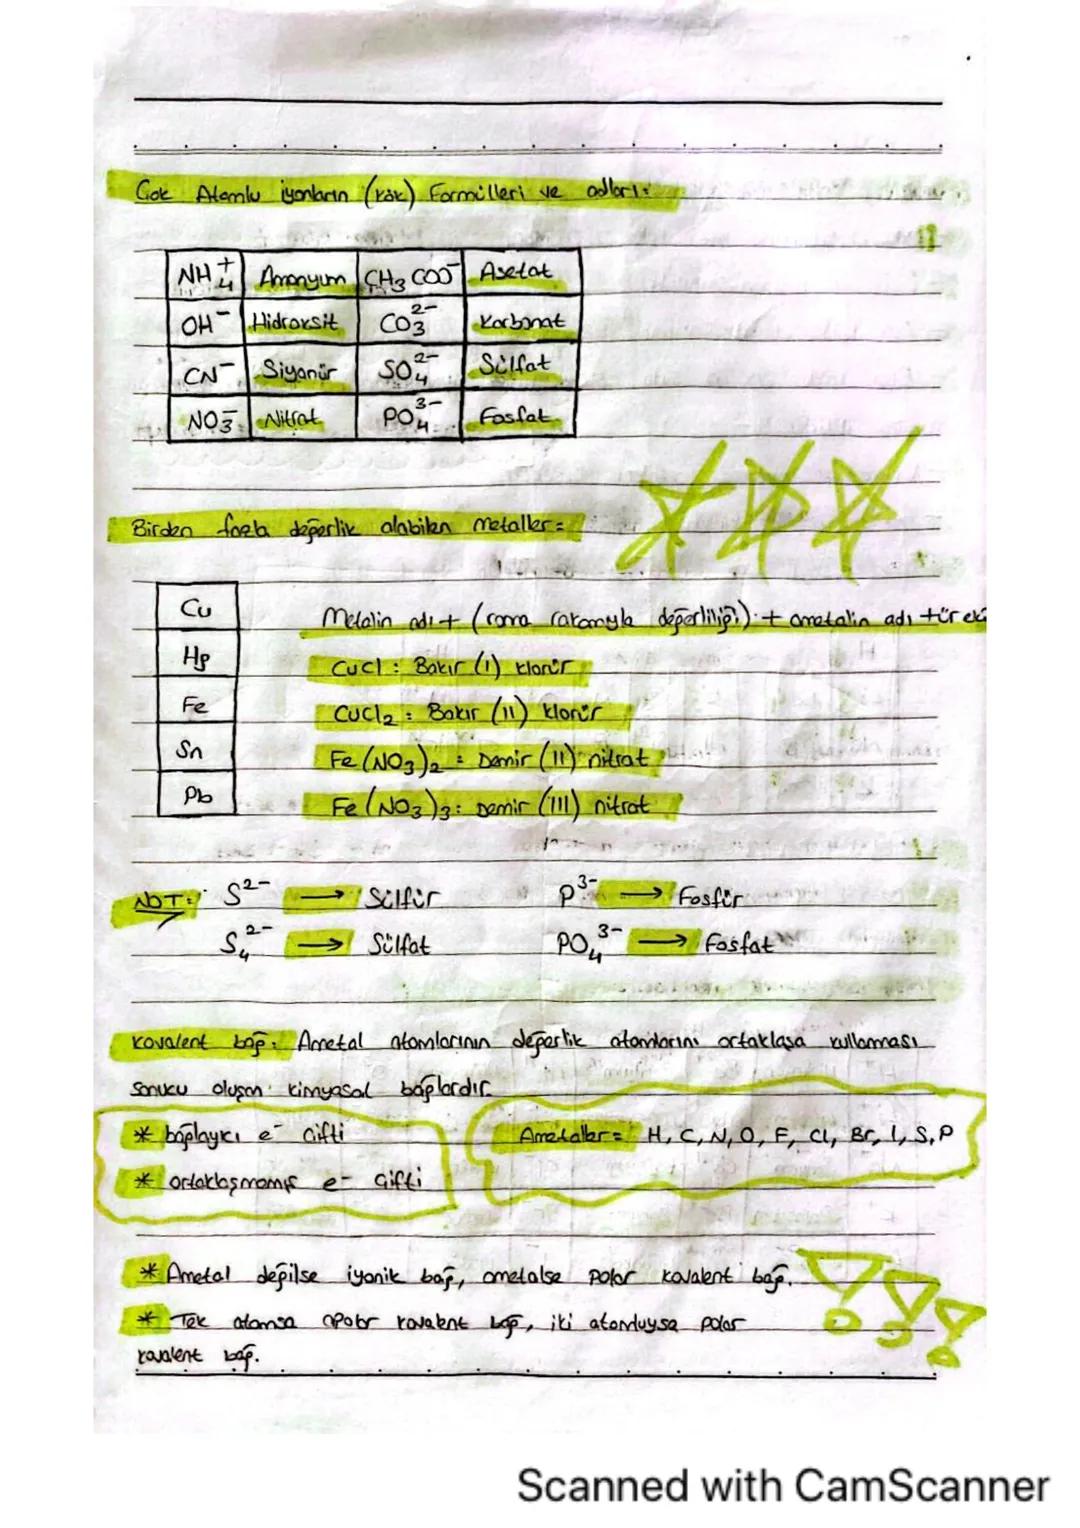 Çok Atomlu iyonların (kök) Formülleri ve adları:
NH4+ Amonyum CH3COO- Asetat
OH- Hidroksit CO3 2- Karbonat
CN- Siyanür SO4 2- Sülfat
NO3- Nitrat PO4 3- Fosfat
Birden fazla değerlik alabilen metaller=
Cu
Metalin adı + (roma rakamıyla değerliliği) + ametalin adı + ür eki
Hg
CuCl : Bakır (I) klorür
Fe
CuCl2 : Bakır (II) klorür
Sn
Fe(NO3)2 : Demir (II) nitrat
Pb
Fe(NO3)3 : Demir (III) nitrat
NOT: S2- → Sülfür P3- → Fosfür
S4 2- → Sülfat PO4 3- → Fosfat
Kovalent bağ: Ametal atomlarının değerlik atomlarını ortaklaşa kullanması
sonucu oluşan kimyasal bağlardır.
* bağlayıcı e- çifti
Ametaller= H, C, N, O, F, Cl, Br, I, S, P
* ortaklaşmamış e- çifti
* Ametal değilse iyonik bağ, ametalse polar kovalent bağ.
* Tek atomsa apolar kovalent bağ, iki atomduysa polar
kovalent bağ.
Scanned with CamScanner